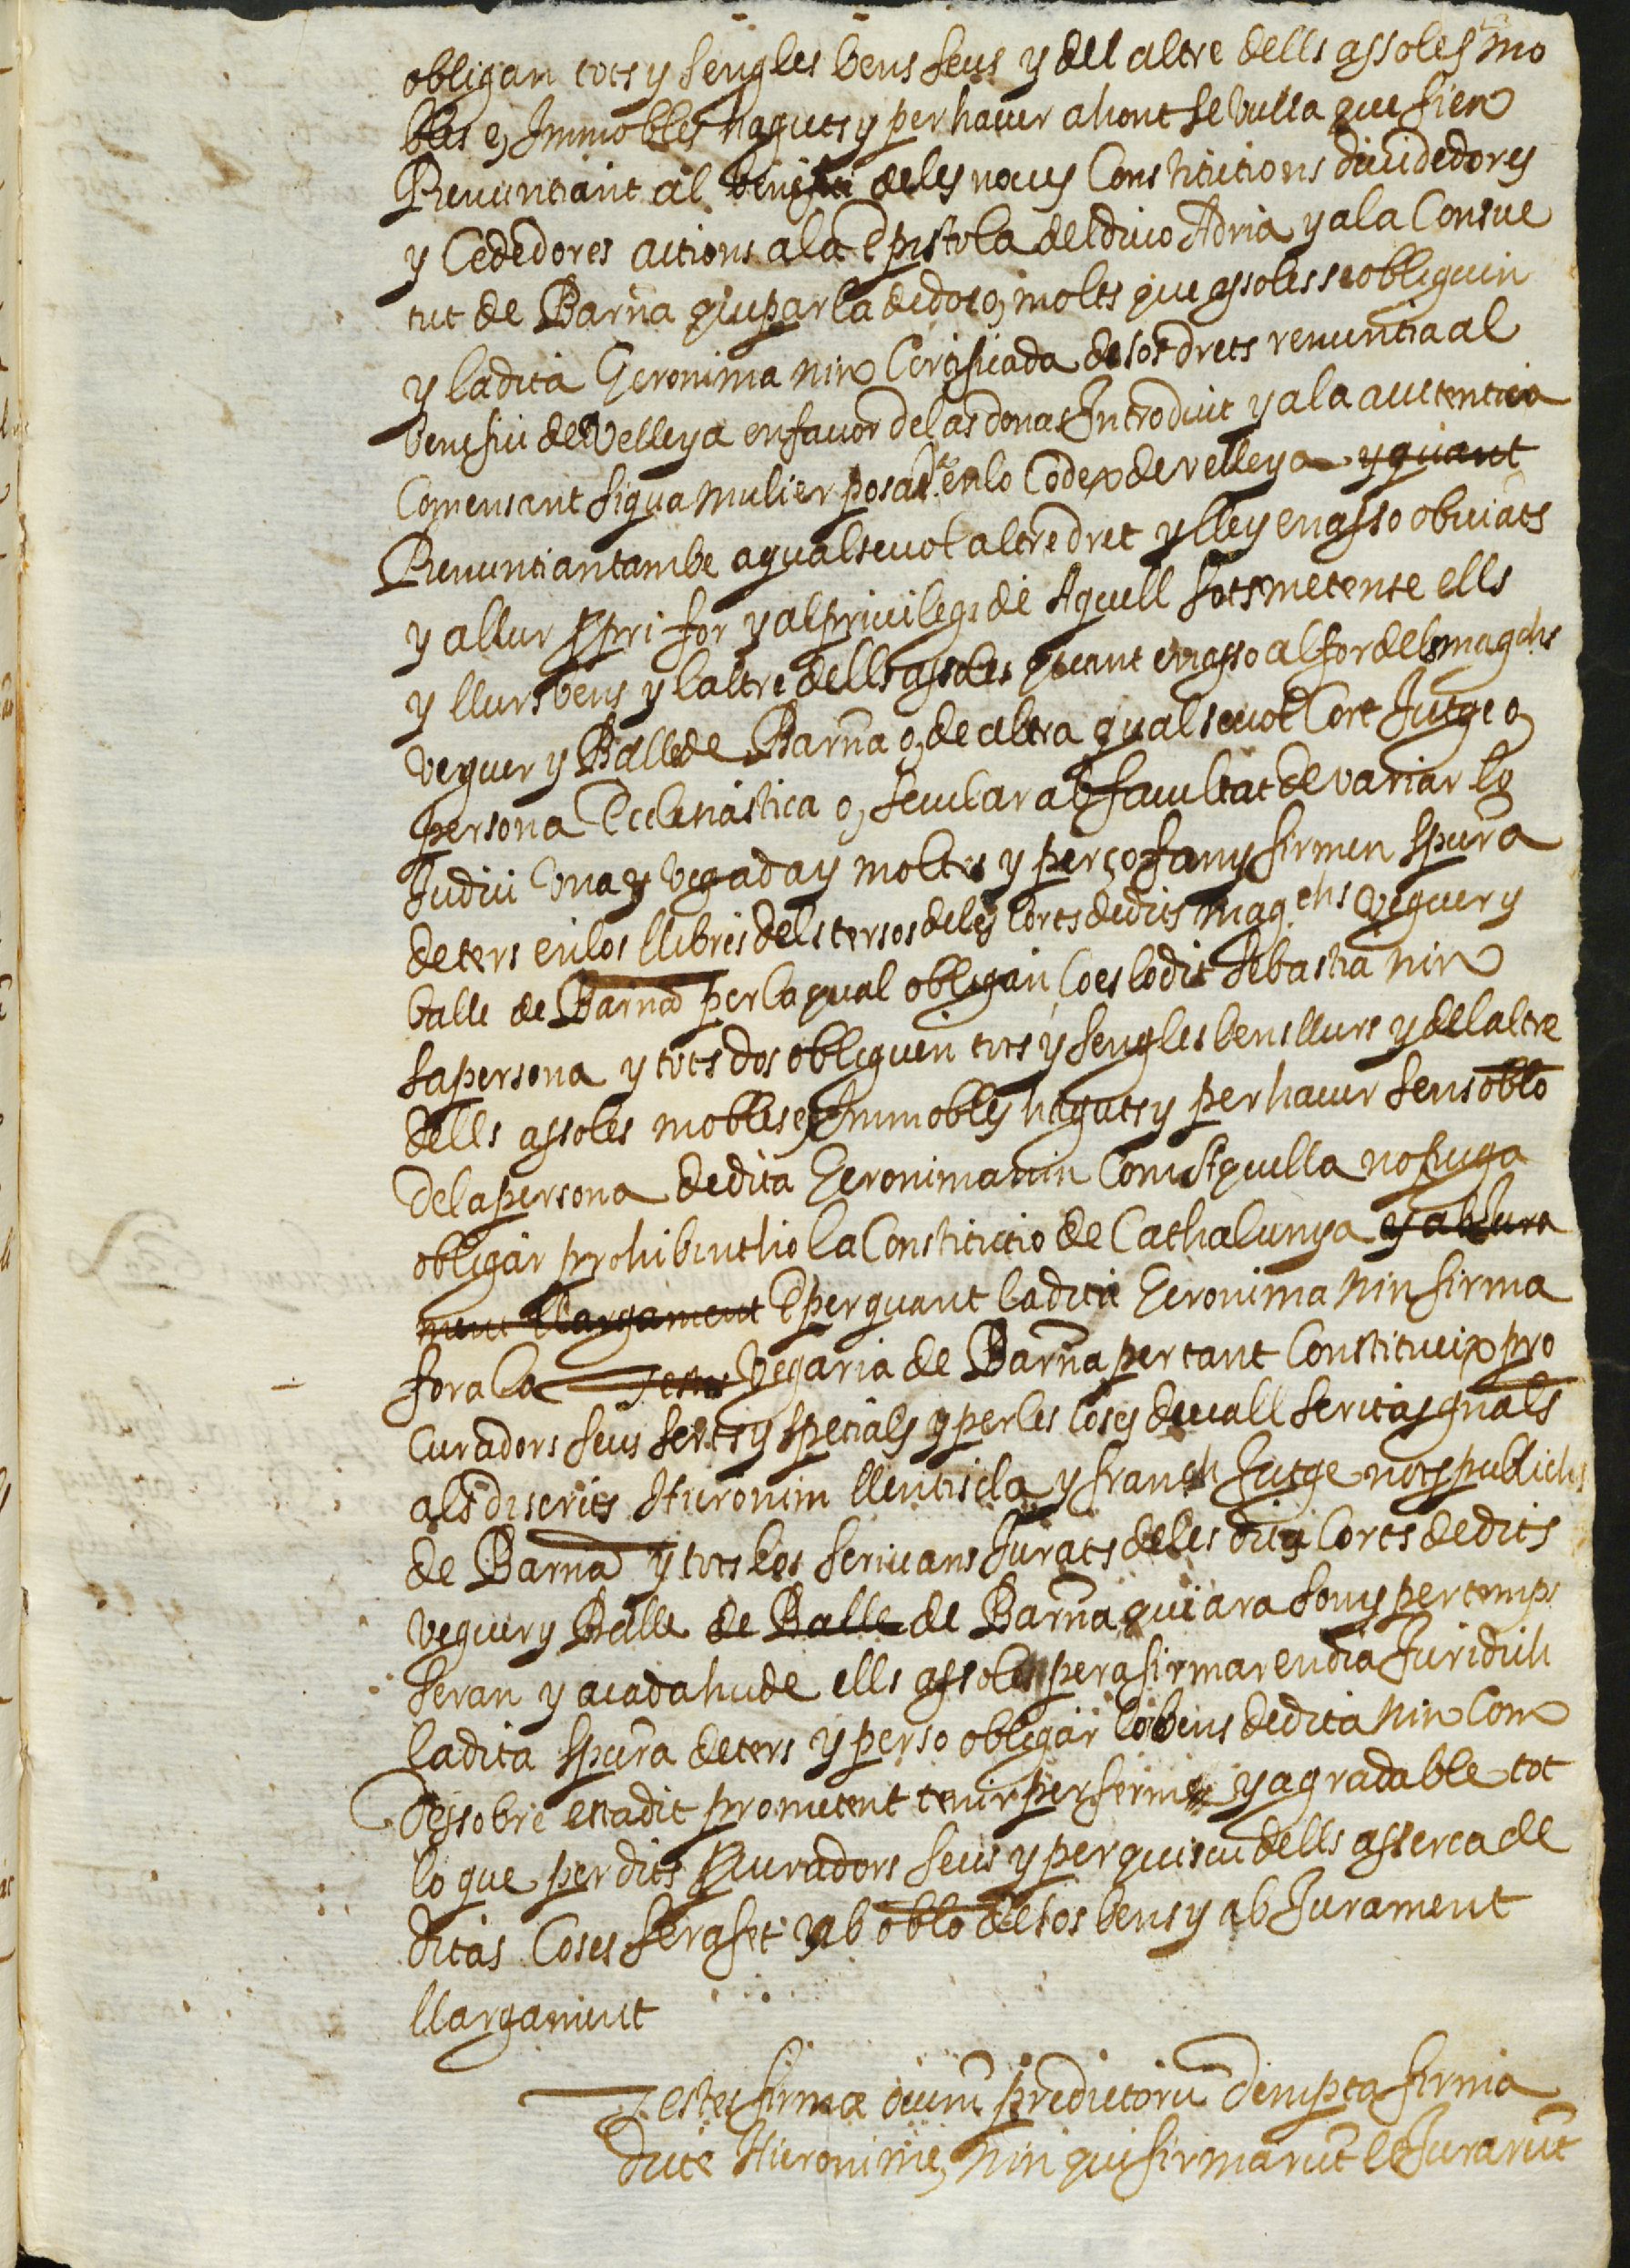 obligan tots y sengles bens seus y del altre dells assoles mo
bles e, Immobles haguts y per hauer ahont se vulla que sien
Renuntiant al benifici de les noues Constitutions diuidedores
y Cededores actions a la Epistola del diuo Adria y a la Consue
tut de Barna q̄ue parla de dos o, molts que assoles se obliguin
y la dita Geronima nin Certificada de sos drets renuntia al
benifici de Velleya en fauor de las donas Introduit y a la autentica
Comensant siqua mulier posada en lo Codex de velleya y quant
Renuntian tambe a qualseuol altre dret y lley en asso obuiats
y a llur ppri for y al priuilegi de Aquell sotsmetense ells
y llurs bens y laltre dells assoles quant en asso al for dels magchs
veguer y Balle de Barna o, de altra qualseuol Cort Jutge o,
persona Ecclesiastica o, secular ab facultat de variar lo
Judici vna y vegada y moltes y perço fan y firmen spūra
de ters en los llibres dels tersos de les Corts de dits mag.chs veguer y
balle de Barna per la qual obligan Co es lo dit Sebastia nin
sa persona y tots dos obliguen tots y sengles bens llurs y del altre
dells assoles mobles e, Immobles haguts y per hauer sens oblo
de la persona de dita Geronima nin Com Aquella no puga
obligar prohibintho la Constitutio de Cathalunya y ab Jura
ment llargament E per quant la dita Geronima Nin firma
fora la Testes Vegaria de Barna per tant Constitueix pro
Curadors seus serts y specials y per les Coses deuall scritas grāls
als discrets Hieronim llentiscla y franch Jutge nots publichs
de Barna y tots los scriuans Jurats de les dites Corts de dits
veguer y Balle de Balle de Barna qui ara son y per temps
seran y a cada hu de ells assoles per a firmar en dia Juridich
la dita spūra de ters y perso obligar los bens de dita Nin Com
dessobre esta dit prometent tenir per ferm y agradable tot
lo que per dits pcuradors seus y per quiscu dells asserca de
ditas Coses sera fet y ab oblo de sos bens y ab Jurament
llargament
Testes firmæ oium predictorū dempta firma
dicte Hieronime, Nin qui firmarūt et Jurarūt